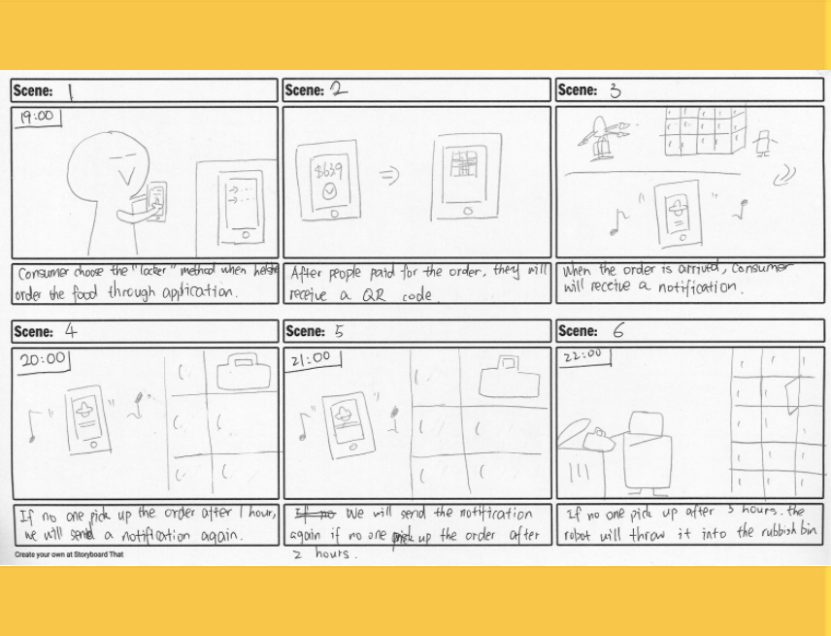 Scene: 1
Scene: 2
Scene: 3
19:00
$639
Consumer choose the "locker" method when he/she
order the food through application.
After people paid for the order, they will
receive a QR code.
When the order is arrived, consumer
will receive a notification.
Scene: 4
Scene: 5
Scene: 6
20:00
21:00
22:00
If no one pick up the order after 1 hour,
we will send a notification again.
If no We will send the notification
again if no one pick up the order after
2 hours.
If no one pick up after 3 hours. the
robot will throw it into the rubbish bin
Create your own at Storyboard That